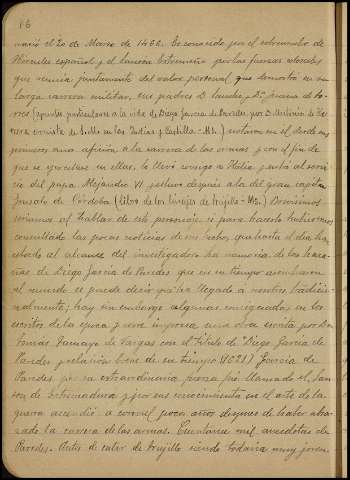 16
nació el 20 de Marzo de 1466. Es conocido por el sobrenombre de
Hércules español y el Sansón Extremeño por las fuerzas colosales
que reunía juntamente del valor personal que demostró en su
larga carrera militar, sus padres D. Sancho y Dª Juana de To-
rres (apuntes particulares a la vida de Diego García de Paredes, por D. Antonio de He-
rrera cronista de las Indias y Castilla. Ms.) notaron en él desde sus
primeros años afición a la carrera de las armas y con el fin de
que se ejercitase en ellas, le llevó consigo a Italia y entró al servi-
cio del papa Alejandro VI y estuvo después a la del gran capitán
Gonzalo de Córdoba (Libro de los linajes de Trujillo - Ms.)
al hablar de este personaje si para hacerlo hubiéramos
consultado las pocas noticias de sus hechos, que hasta el día ha
echado al alcance del investigador la memoria de las haza-
ñas de Diego García de Paredes que en su tiempo asombraron
al mundo se puede decir que ha llegado a nosotros tradicio-
nalmente; hay sin embargo algunas consignadas en los
escritos de la época y una impresa una obra escrita por Don
Tomás Tamayo de Vargas con el título de Diego García de
Paredes y relación breve de su tiempo (1621) García de
Paredes por su extraordinaria fuerza fué llamado el San-
són de Extremadura y por sus conocimientos en el arte de la
guerra ascendió a coronel pocos años despues de haber abra-
zado la carrera de las armas. Cuentanse mil anecdotas de
Paredes. Antes de salir de Trujillo siendo todavía muy joven